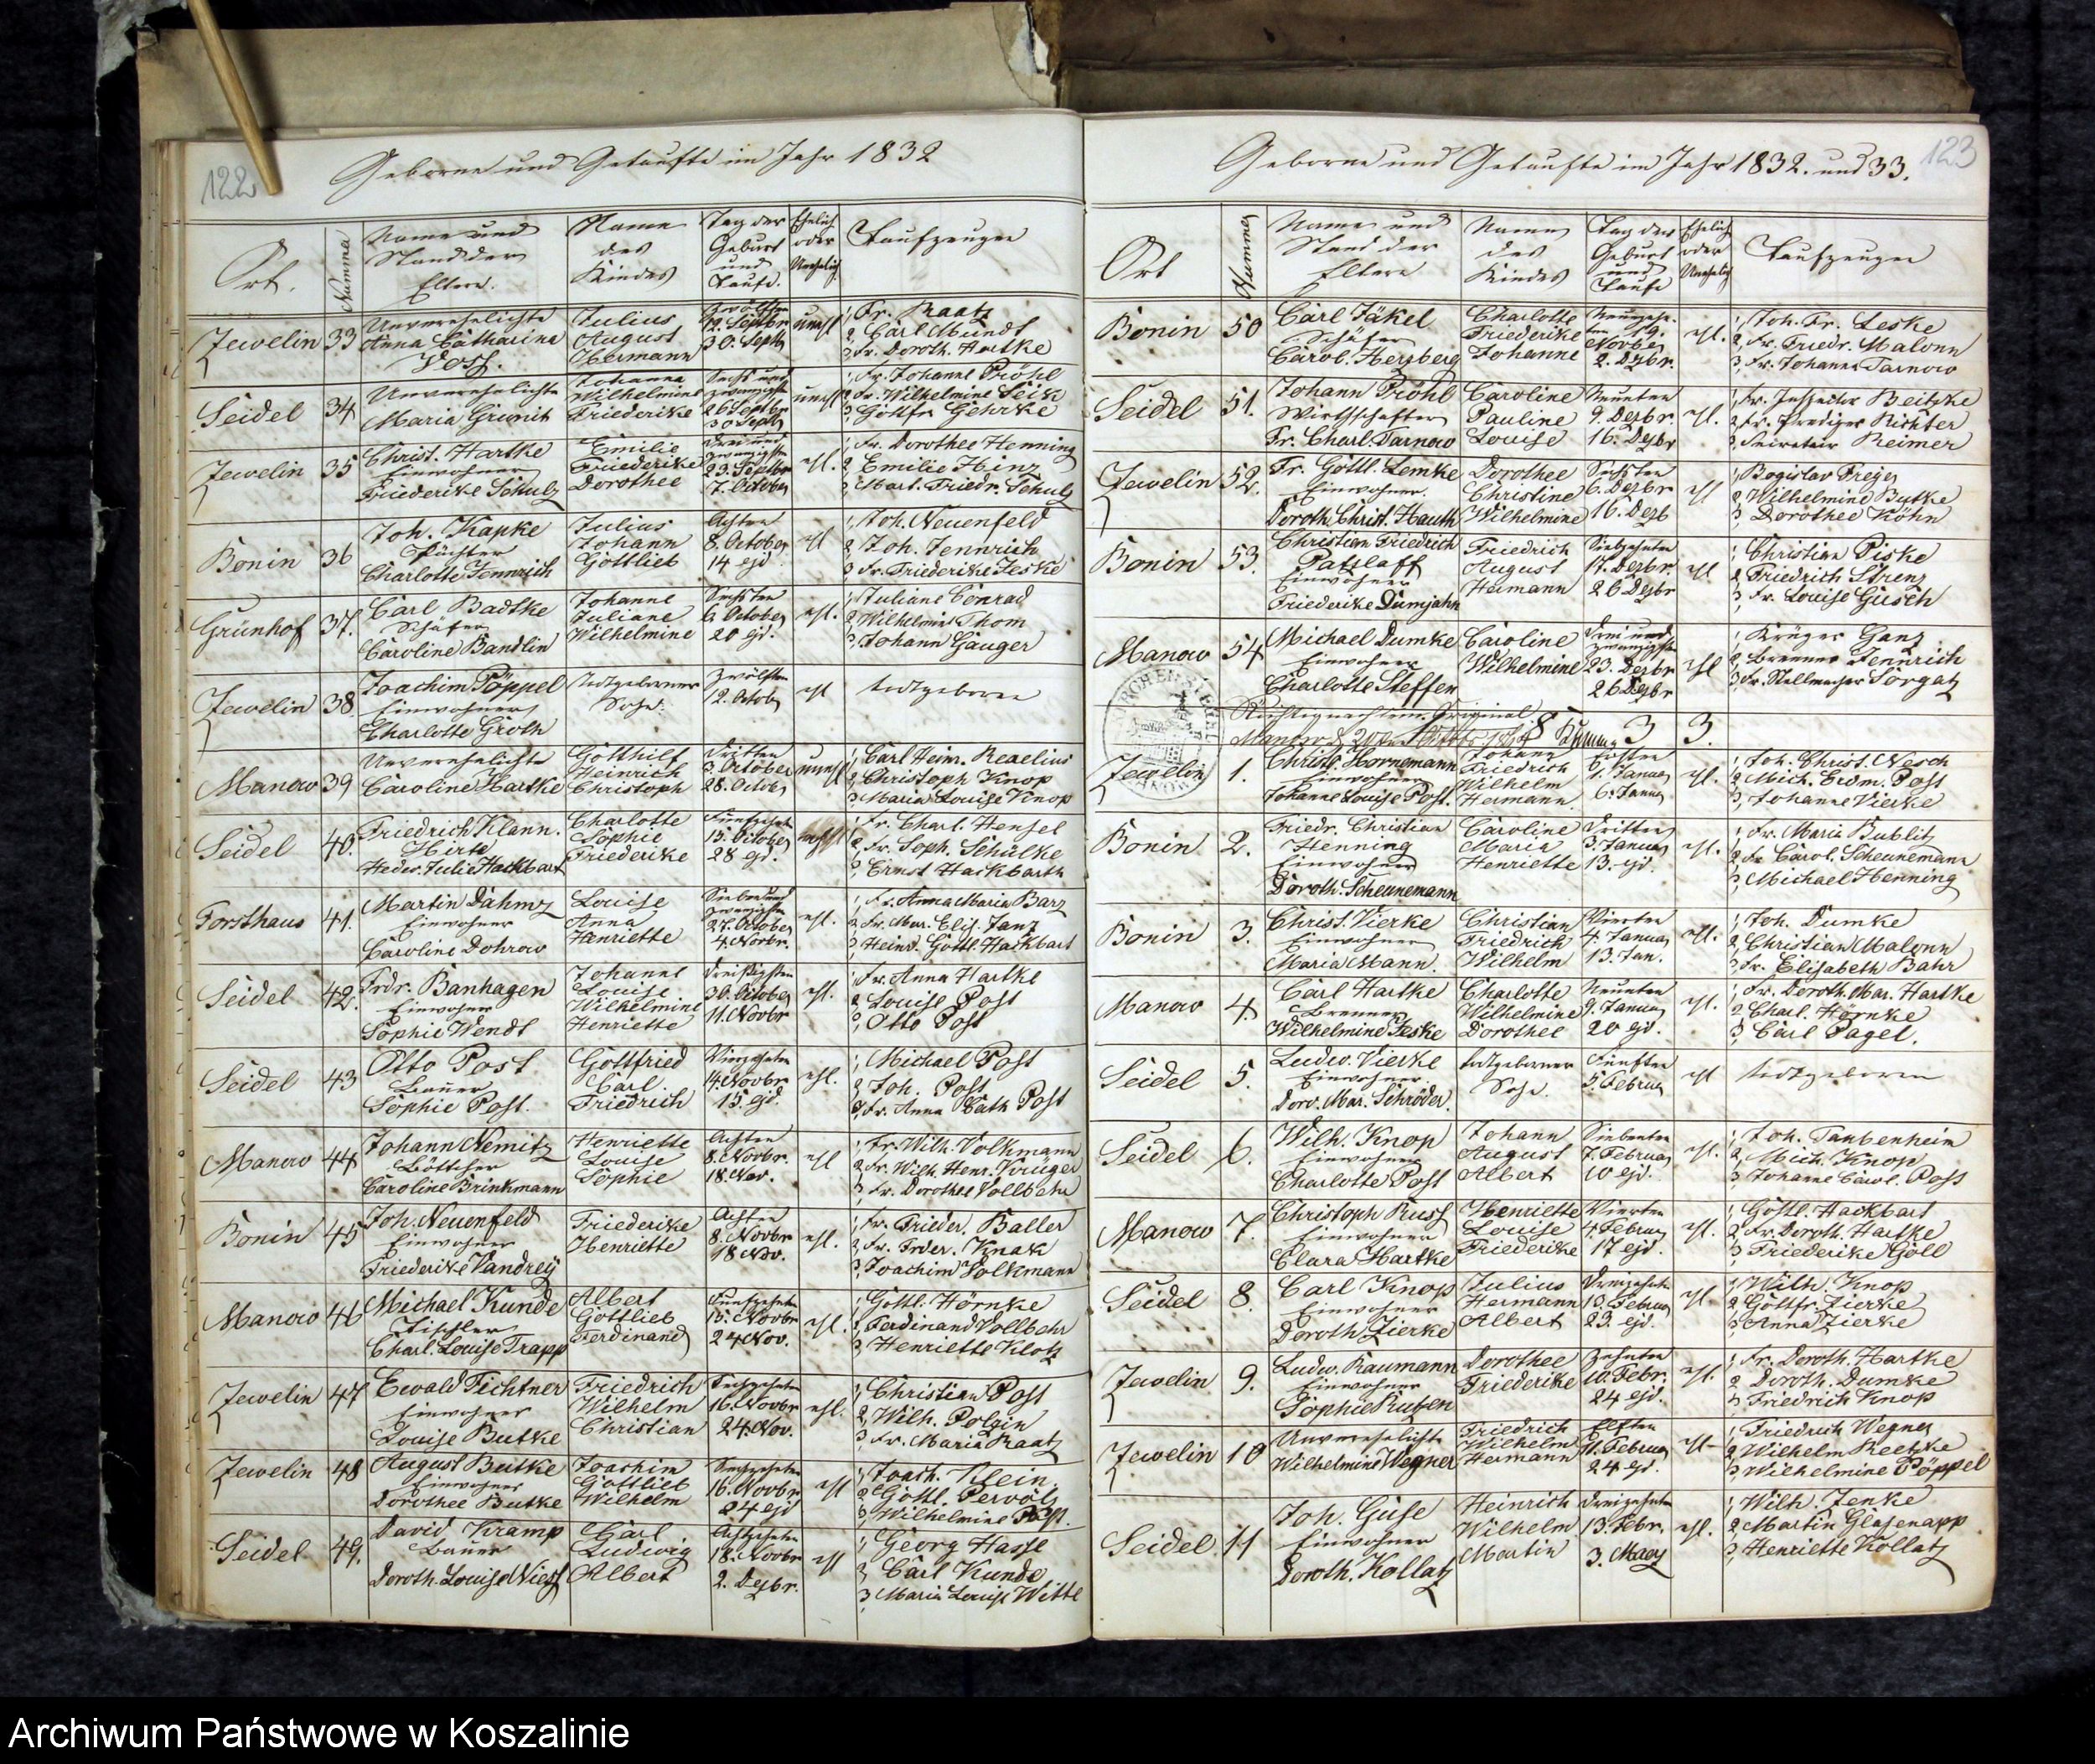 122
Geborne und Getaufte im Jahr 1832
Ort.
Numme
Name und Stand der Eltern.
Name des Kindes
Tag der Geburt und Taufe.
Ehelich oder Unehelich
Taufzeugen
Jewelin 33
Unverehelichte
Anna Catharina
Voss.
Julius
August
Hermann
19. Septbr
30. Septb
unehl
1, Fr. Raatz
2, Carl Mundt
3, Fr. Doroth. Hartke
Seidel 34
Unverehelichte
Maria
Johanna
Wilhelmine
Friederike
Sechs und zwanzigsten
26 Septbr
30 Septb
unehl
1, Fr. Johanne Pröhl
2, Fr. Wilhelmine
3, Gottfr. Gehrke
Jewelin 35
Christ. Hartke
Einwohner
Friederike Schulz
Emilie
Friederike
Dorothee
Drei und zwanzigsten
23. Septbr
7. October
ehl.
1, Fr. Dorothee Henning
2, Emilie Hinz
3, Mart. Friedr. Schulz
Bonin 36
Joh. Kapke
Pächter
Charlotte Jennrich
Julius
Johann
Gottlieb
Achten
8. October
14 ejd
ehl
1, Joh. Neuenfeld
2, Joh. Jennrich
3, Fr. Friederike Jeske
Grünhof 37.
Carl Badtke
Schäfer
Caroline Bandlin
Johanne
Juliane
Wilhelmine
Sechsten
6. October
20 ejd.
ehl.
1, Juliane Conrad
2, Wilhelmine Thom
3, Johann Gauger
Jewelin 38
Joachim Pöppel
Einwohner
Charlotte Groth
Todtgeborner
Sohn.
Zwölften
12. Octob
ehl
todtgeboren
Manow 39
Unverehelichte
Caroline Hartke
Gotthilf
Heinrich
Christoph
Dritten
3. October
28. Octob
unehl
1, Carl Heinr.
2, Christoph Knop
3, Maria Louise Knop
Seidel 40.
Friedrich Klann.
Hirte
Hedw. Julie Hackbart
Charlotte
Sophie
Friederike
Funfzehnten
15. October
28 ejd.
1, Fr. Charl. Hensel
2, Fr. Soph. Schülke
3, Ernst Hackbarth
Forsthaus 41.
Martin Dahmz
Einwohner
Caroline Dohrow
Louise
Anna
Henriette
Sieben und zwanzigsten
27. October
4. Novbr.
ehl.
1, Fr. Anna Maria Barz
2, Fr. Mar. Elis. Janz
3, Heinr. Gottl. Hackbart
Seidel 42.
Frdr. Banhagen
Einwohner
Sophie Wendt
Johanne
Louise
Wilhelmine
Henriette
Dreißigsten
30. October
11. Novbr
ehl.
1, Fr. Anna Hartke
2, Louise Post
3, Otto Post
Seidel 43
Otto Post
Bauer
Sophie Post.
Gottfried
Carl
Friedrich
Vierzehnten
14. Novbr
15. ejd.
ehl.
1, Michael Post
2, Joh. Post
3, Fr. Anna Cath Post
Manow 44
Johann Nemitz
Böttcher
Caroline Brinkmann
Henriette
Louise
Sophie
Achten
8. Novbr.
18. Nov.
ehl
1, Fr. Wilh. Volkmann
2, Fr. Wilh. Henr.
3, Fr. Dorothee Vollbehr
Bonin 45
Joh. Neuenfeld
Einwohner
Friederike Vandrey
Friederike
Henriette
Achten
8. Novbr
18 Nov.
ehl.
1, Fr. Frieder. Baller
2, Fr. Frder. Knak
3, Joachim Volkmann
Manow 46
Michael Kunde
Tischler
Charl. Louise Trapp
Albert
Gottlieb
Ferdinand
Funfzehnten
15. Novbr
24 Nov.
ehl.
1, Gottl. Hörnke
2, Ferdinand Vollbehr
3, Henriette Klotz
Jewelin 47
Ewald Fechtner
Einwohner
Louise Butke
Friedrich
Wilhelm
Christian
Sechzehnten
16. Novbr
24. Nov.
ehl.
1, Christian Post
2, Wilh. Polzin
3, Fr. Maria Raatz
Jewelin 48
August Butke
Einwohner
Dorothee Butke
Joachim
Gottlieb
Wilhelm
Sechzehnten
16. Novbr
24 ejd
ehl
1, Joach. Klein
2, Gottl. Pervölz
3, Wilhelmine Post.
Seidel 49.
David Kramp
Bauer
Doroth. Louise Niess
Carl
Ludwig
Albert
Achtzehnten
18. Novbr
2. Dezbr.
ehl
1, Georg Hasse
2, Carl Kunde
3, Maria Louise Witte
123
Geborne und Getaufte im Jahr 1832. und 33.
Ort
Numme
Name und Stand der Eltern
Namen des Kindes
Tag der Geburt und Taufe
Ehelich oder Unehelich
Taufzeugen
Bonin 50
Carl Jäkel
Schäfer
Carol. Herzberg
Charlotte
Friederike
Johanne
Neunzehnten 19.
Novbr
2. Dezbr.
ehl.
1, Joh. Fr. Leske
2, Fr. Friedr. Malonn
3, Fr. Johanne Tarnow
Seidel 51.
Johann Pröhl
Wirthschafter
Fr. Charl. Tarnow
Caroline
Pauline
Louise
Neunten
9. Dezbr.
16. Dezbr
ehl.
1, Fr. Inspector Beitzke
2, Fr. Prediger Richter
3, Secretair Reimer
Jewelin 52.
Fr. Gottl. Lemke
Einwohner.
Doroth. Christ. Hauth
Dorothee
Christine
Wilhelmine
Sechsten
6. Dezbr
16. Dezb
ehl
1, Bogislav Freyer
2, Wilhelmine Butke
3, Dorothee Köhn
Bonin 53.
Christian Friedrich
Patzlaff
Einwohner
Friederike Dumjahn
Friedrich
August
Hermann
Siebzehnten
17. Dezbr.
26 Dezbr
ehl
1, Christian Piske
2, Friedrich Strenz
3, Fr. Louise Gusch
Manow 54
Michael Dumke
Einwohner
Charlotte Steffen
Caroline
Wilhelmine
Drei und zwanzigsten
23. Dezbr
26 Dezbr
ehl
1, Krüger Ganz
2, Brenner Jennrich
3, Fr. Stellmacher Sorgatz
Jewelin 1.
Christl. Hornemann
Einwohner
Johanne Louise Post.
Johann
Friedrich
Wilhelm
Hermann
Ersten
1. Januar
6. Januar
ehl.
1, Joh. Christ. Nesch
2, Mich. Erdm. Post
3, Johanne Vierke
Bonin 2.
Friedr. Christian
Henning
Einwohner
Doroth. Scheunemann
Caroline
Maria
Henriette
Dritten
3. Januar
13. ejd.
ehl.
1, Fr. Maria Bublitz
2, Fr Carol. Scheunemann
3, Michael Henning
Bonin 3.
Christ. Vierke
Einwohner
Maria Mann.
Christian
Friedrich
Wilhelm
Vierten
4. Januar
13. Jan.
ehl.
1, Joh. Dumke
2, Christian Malonn
3, Fr. Elisabeth Bahr
Manow 4.
Carl Hartke
Brenner
Wilhelmine Jeske
Charlotte
Wilhelmine
Dorothee
Neunten
9. Januar
20 ejd.
ehl.
1, Fr. Doroth. Mar. Hartke
2, Charl. Hörnke
3, Carl Pagel.
Seidel 5.
Ludw. Vierke
Einwohner.
Doro. Mar. Schröder.
todtgeborner
Sohn.
Fünften
5. Februar
ehl
todtgeboren
Seidel 6.
Wilh. Knop
Einwohner
Charlotte Post
Johann
August
Albert
Siebenten
7. Februar
10 ejd.
ehl.
1, Joh. Taubenheim
2, Mich. Knop
3, Johanne Carol. Post
Manow 7.
Christoph Russ
Einwohner
Clara Hartke
Henriette
Louise
Friederike
Vierten
4. Februar
17 ejd.
ehl.
1, Gottl. Hackbart
2, Fr. Doroth. Hartke
3, Friederike Göll
Seidel 8.
Carl Knop
Einwohner
Doroth Zierke
Julius
Hermann
Albert
Dreizehnten
13. Februar
23. ejd.
ehl.
1, Wilh. Knop
2, Gottfr. Zierke
3, Anna Zierke
Jewelin 9.
Ludw. Raumann
Einwohner
Sophie Rutzen
Dorothee
Friederike
Zehnten
10. Febr.
24 ejd.
ehl.
1, Fr. Doroth. Hartke
2, Doroth. Dumke
3, Friedrich Knop
Jewelin 10
Unverehelichte
Wilhelmine Wegner
Friedrich
Wilhelm
Hermann
Elften
11. Februar
24 ejd.
ehl
1, Friedrich Wegner
2, Wilhelm Reetzke
3, Wilhelmine Pöppel
Seidel. 11
Joh. Guse
Einwohner
Doroth. Kollatz
Heinrich
Wilhelm
Martin
Dreizehnten
13. Febr.
3. Maerz
ehl.
1, Wilh. Jenke
2, Martin Glasenapp
3, Henriette Kollatz
Archiwum Państwowe w Koszalinie